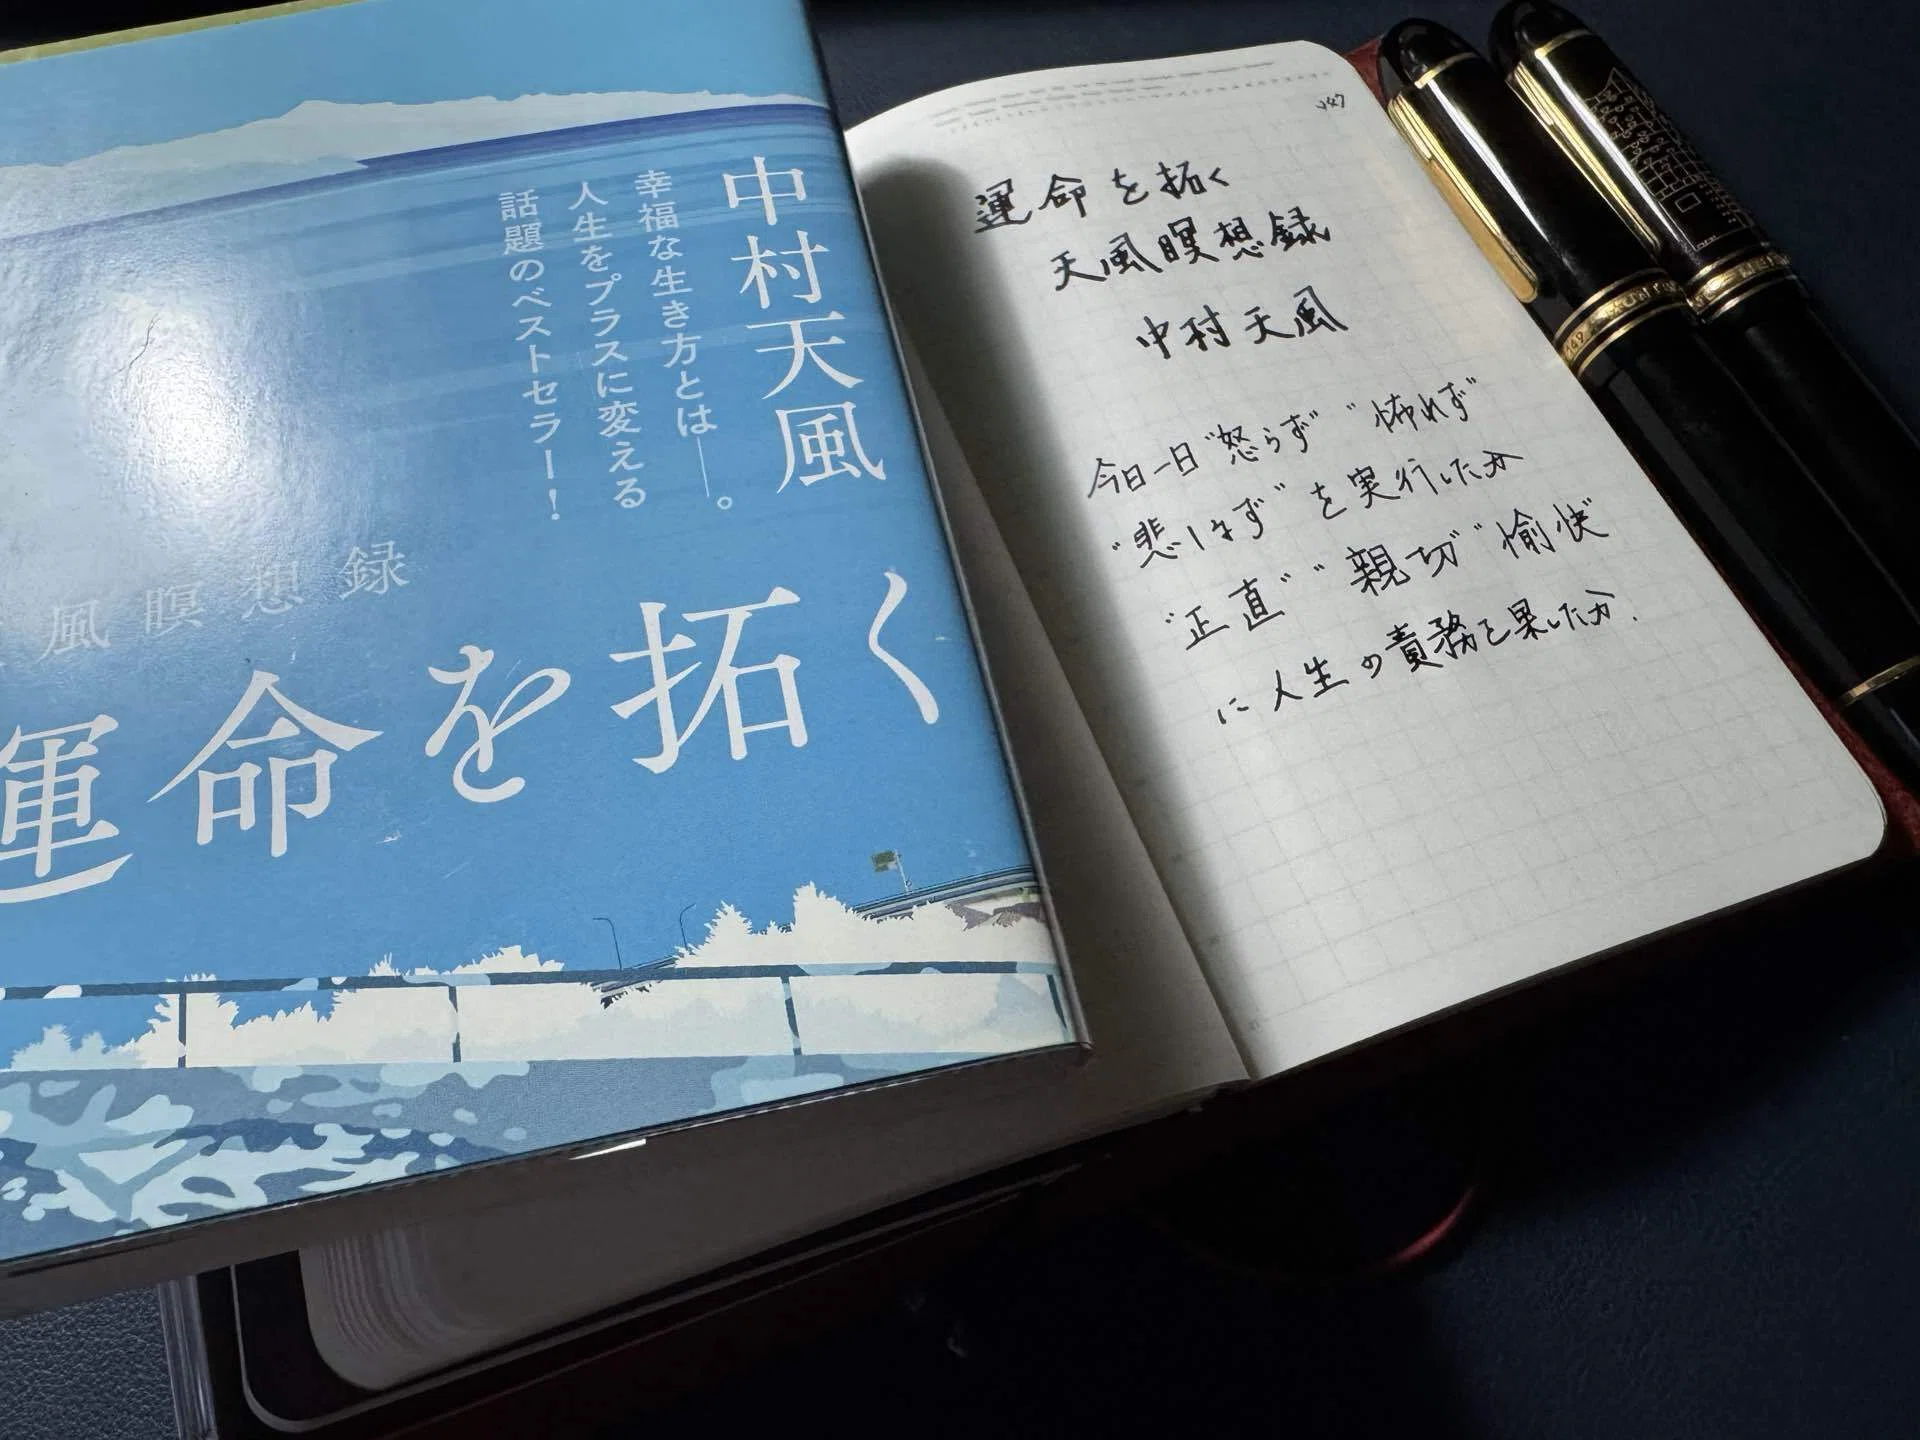 中村天風
幸福な生き方とは――。
人生をプラスに変える
話題のベストセラー！
風瞑想録
運命を拓く
運命を拓く
天風瞑想録
中村天風
今日一日"怒らず" "怖れず"
"悲しまず"を実行したか
"正直" "親切" "愉快"
に人生の責務を果したか.
149